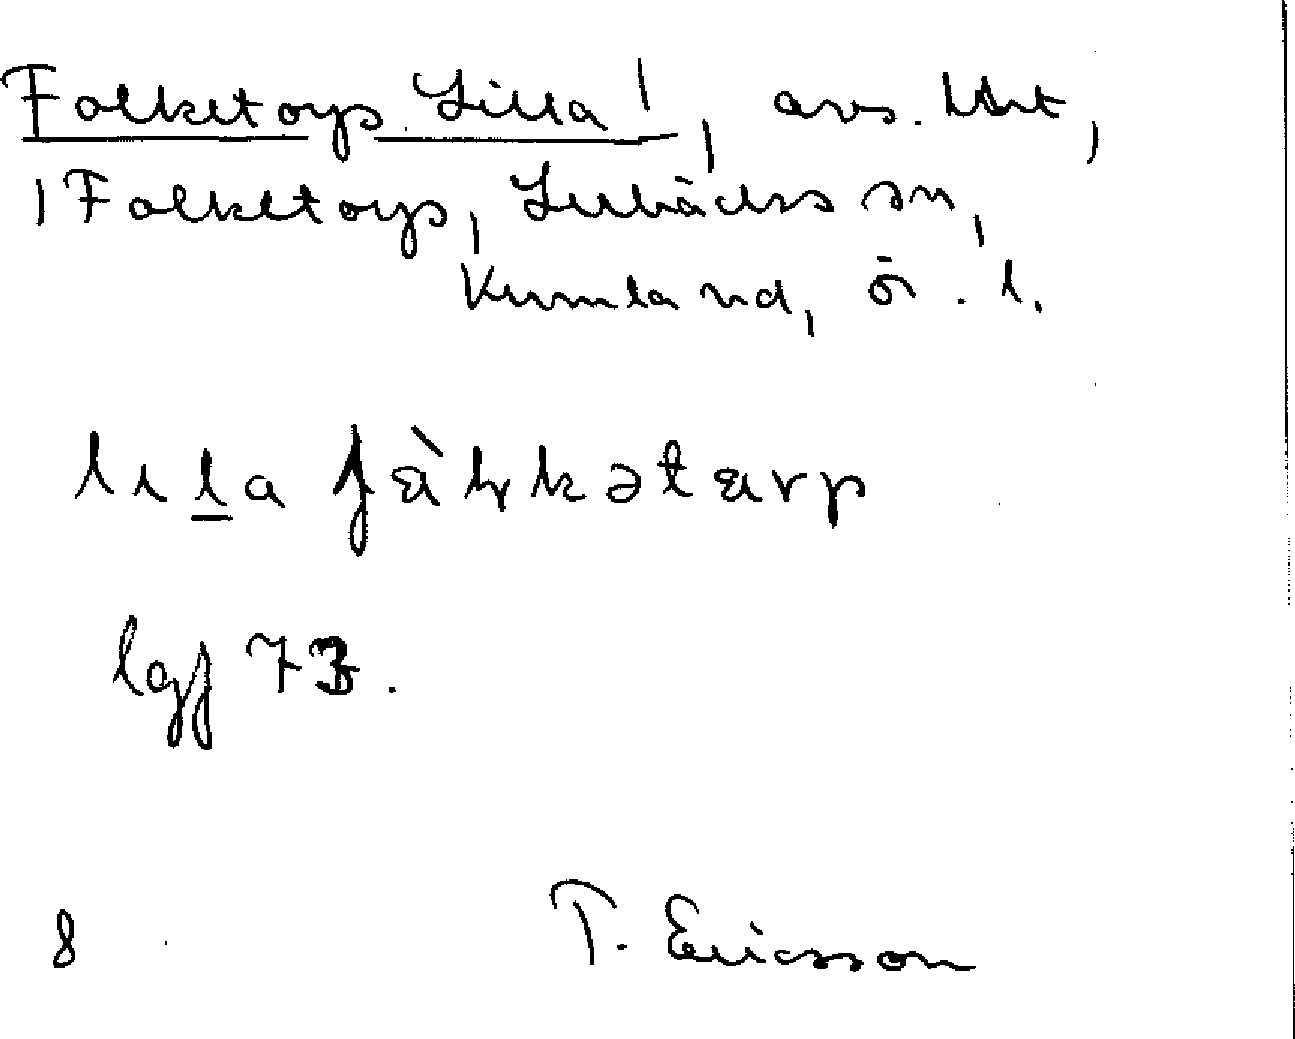 Folketorp Lilla, avs. lht,
i Folketorp, Lerbäcks sn,
Kumla hd, ör. l.
lıla fàlkətarp
lgf 73.
8 T. Ericsson